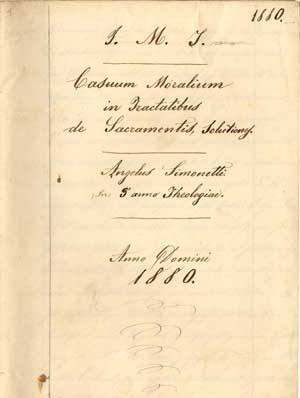 1880.
J. M. J.
Casuum Moralium
in Tractatibus
de Sacramentis, Solutiones.
Angelus Simonetti
in 3º anno Theologiae.
Anno Domini
1880.